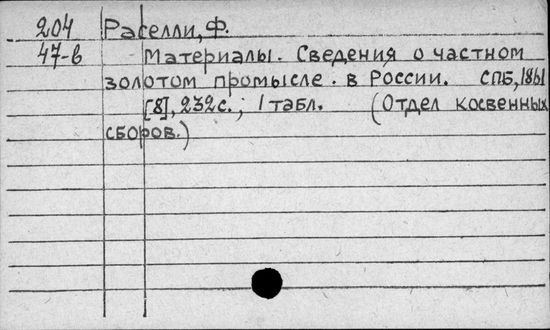 204 Раселли, Ф.
47-в Материалы. Сведения о частном
золотом промысле. в России. СПБ, 1861
[8], 232 с.; 1 табл. (Отдел косвенных
сборов.)